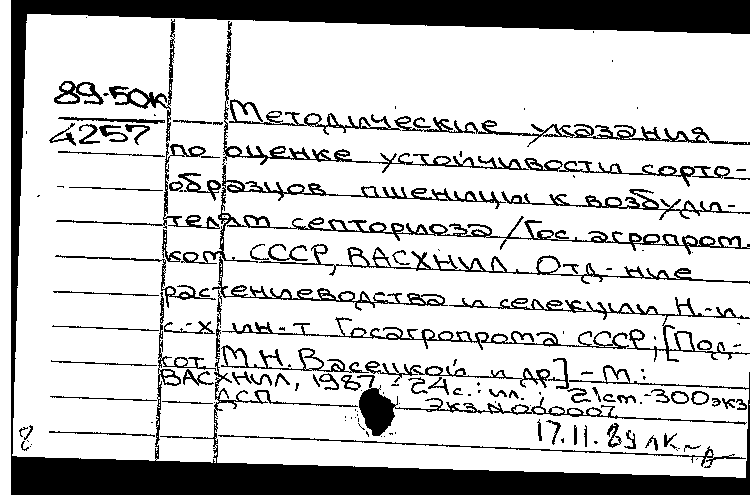 89-50к
4257
Методические указания
по оценке устойчивости сорто-
образцов пшеницы к возбуди-
телям септориоза / Гос. агропром.
ком. СССР, ВАСХНИЛ. Отд-ние
растениеводства и селекции, Н.-и.
с.-х ин-т Госагропрома СССР; [Под-
гот. М.Н. Васецкой и др.] - М.:
ВАСХНИЛ, 1987. - 24с.: ил.; 21см. - 300экз
ДСП
Экз.N000007
17.11.89
8